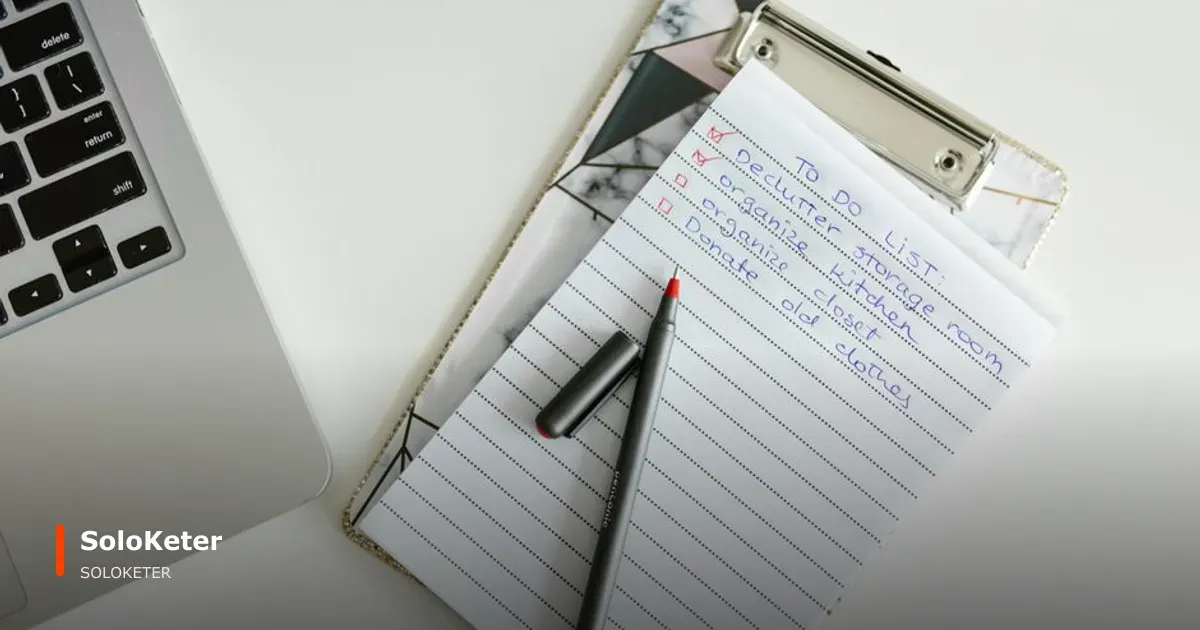 delete
enter
return
shift
TO DO LIST:
Declutter storage room
organize kitchen
organize closet
Donate old clothes
SoloKeter
SOLOKETER